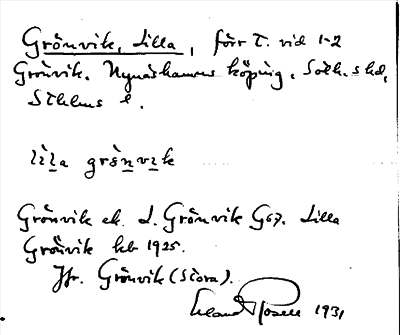 Grönvik, Lilla, förr t. vid 1-2
Grönvik. Nynäshamns köping. Soth. s hd,
Sthlms l.
lìla grö̀nvιk
Grönvik ek. L. Grönvik G67. Lilla
Grönvik kb 1925.
Jfr. Grönvik (Stora).
Erland Rosell 1931